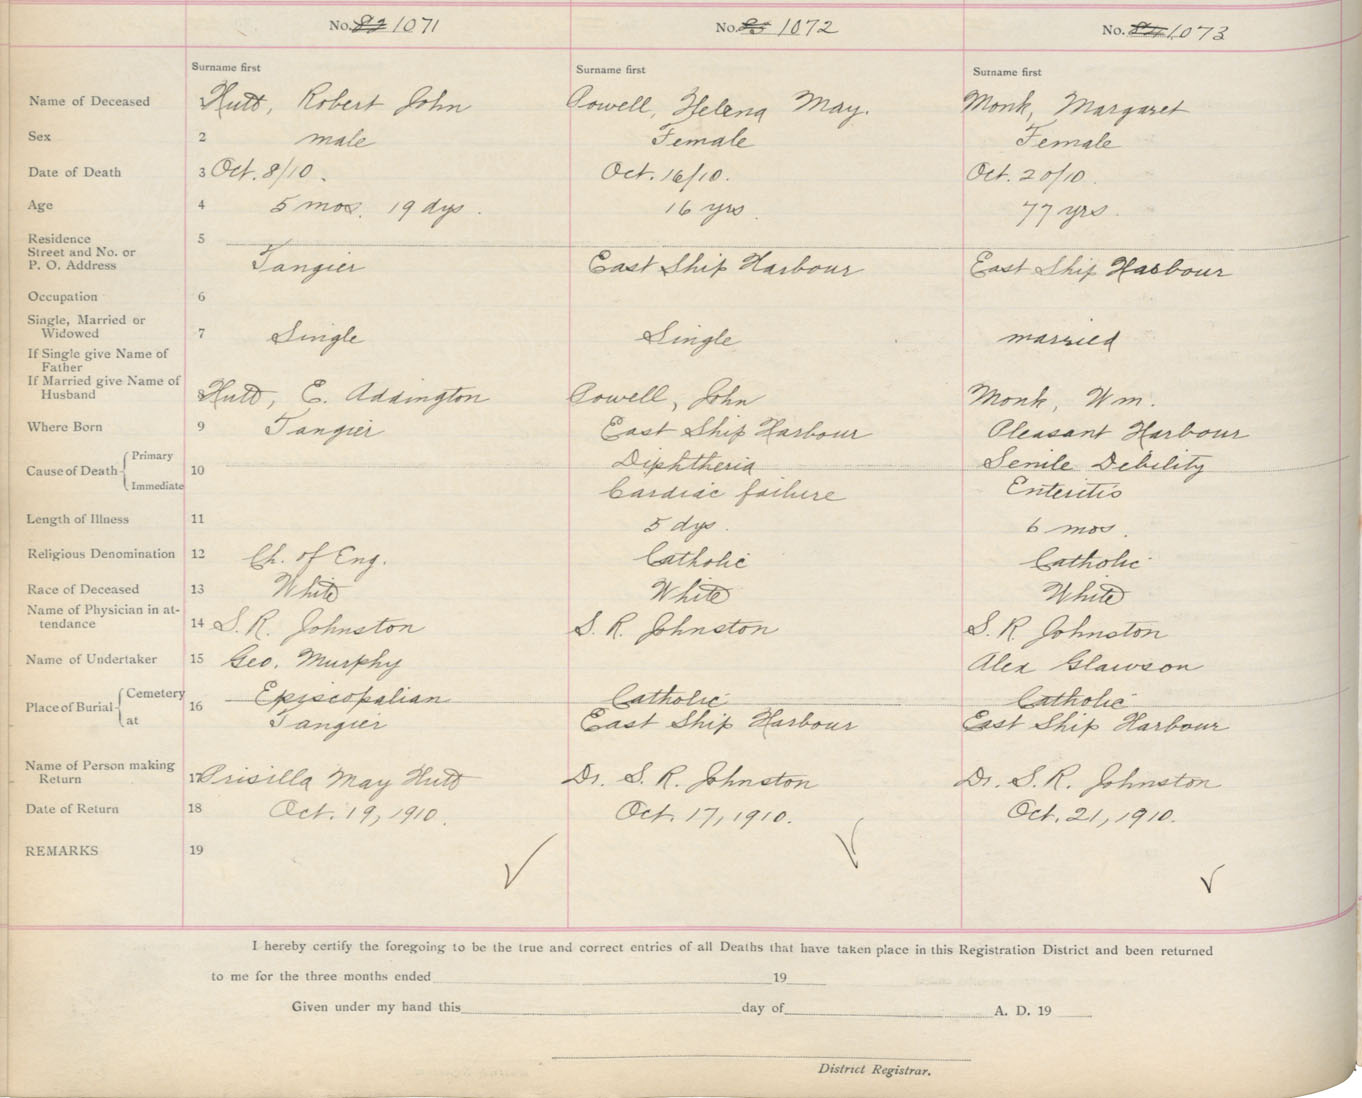 No. 1071 No. 1072 No. 1073
Surname first Surname first Surname first
Name of Deceased 1 Hutt, Robert John Powell, Helena May. Monk, Margaret
Sex 2 male Female Female
Date of Death 3 Oct. 8/10. Oct. 16/10. Oct. 20/10.
Age 4 5 mos. 19 dys. 16 yrs. 77 yrs.
Residence 5
Street and No. or
P. O. Address Tangier East Ship Harbour East Ship Harbour
Occupation 6
Single, Married or
Widowed 7 Single Single married
If Single give Name of
Father
If Married give Name of
Husband 8 Hutt, E. Addington Powell, John Monk, Wm.
Where Born 9 Tangier East Ship Harbour Pleasant Harbour
Cause of Death 10 Primary Diphtheria Senile Debility
Immediate Cardiac failure Enteritis
Length of Illness 11 5 dys. 6 mos.
Religious Denomination 12 Ch. of Eng. Catholic Catholic
Race of Deceased 13 White White White
Name of Physician in at-
tendance 14 S. R. Johnston S. R. Johnston S. R Johnston
Name of Undertaker 15 Geo. Murphy Alex Glawson
Place of Burial 16 Cemetery Episcopalian Catholic Catholic
at Tangier East Ship Harbour East Ship Harbour
Name of Person making
Return 17 Prisilla May Hutt Dr. S. R. Johnston Dr. S. R. Johnston
Date of Return 18 Oct. 19, 1910. Oct. 17, 1910. Oct. 21, 1910.
REMARKS 19
I hereby certify the foregoing to be the true and correct entries of all Deaths that have taken place in this Registration District and been returned
to me for the three months ended 19
Given under my hand this day of A. D. 19
District Registrar.